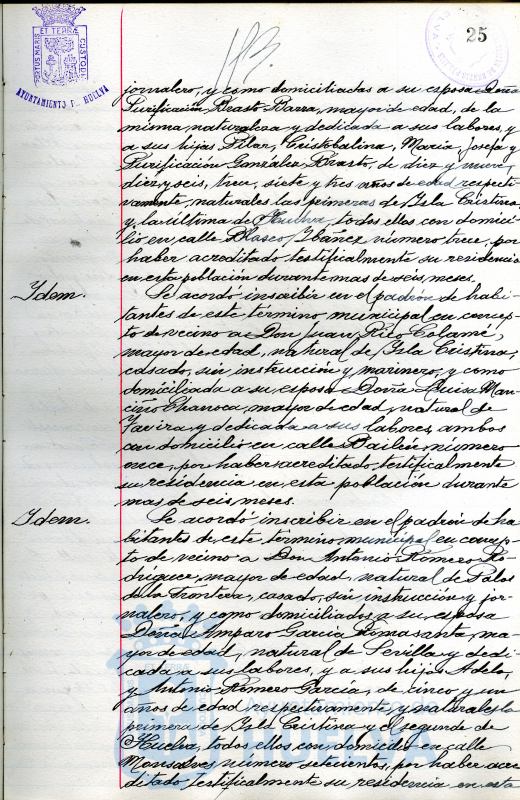 PORTUS MARIS ET TERRÆ CUSTODIA
AYUNTAMIENTO DE HUELVA
25
jornalero, y como domiciliadas a su esposa Doña
Purificación Brasto Barra, mayor de edad, de la
misma naturaleza y dedicada a sus labores, y
a sus hijas Pilar, Cristobalina, María, Josefa y
Purificación González Brasto, de diez y nueve,
diez y seis, trece, siete y tres años de edad respecti-
vamente, naturales las primeras de Isla Cristina,
y la última de Huelva, todos ellos con domici-
lio en calle Blasco Ibáñez número trece, por
haber acreditado testificalmente su residencia
en esta población durante mas de seis meses.
Ydem.
Se acordó inscribir en el padrón de habi-
tantes de este término municipal en concep-
to de vecino a Don Juan Rico Colamé,
mayor de edad, natural de Isla Cristina,
casado, sin instrucción y marinero, y como
domiciliada a su esposa Doña Luisa Man-
ciño Chanoca, mayor de edad, natural de
Tavira y dedicada a sus labores, ambos
con domicilio en calle Bailén, número
once, por haber acreditado testificalmente
su residencia en esta población durante
mas de seis meses.
Ydem.
Se acordó inscribir en el padrón de ha-
bitantes de este término municipal en concep-
to de vecino a Don Antonio Romero Ro-
dríguez, mayor de edad, natural de Palos
de la Frontera, casado, sin instrucción y jor-
nalero, y como domiciliados a su esposa
Doña Amparo García Romasanta, ma-
yor de edad, natural de Sevilla y dedi-
cada a sus labores, y a sus hijos Adela,
y Antonio Romero García, de cinco y un
años de edad respectivamente y naturales la
primera de Isla Cristina y el segundo de
Huelva, todos ellos con domicilio en calle
Monsalves número setecientos, por haber acre-
ditado testificalmente su residencia en esta
HUELVA